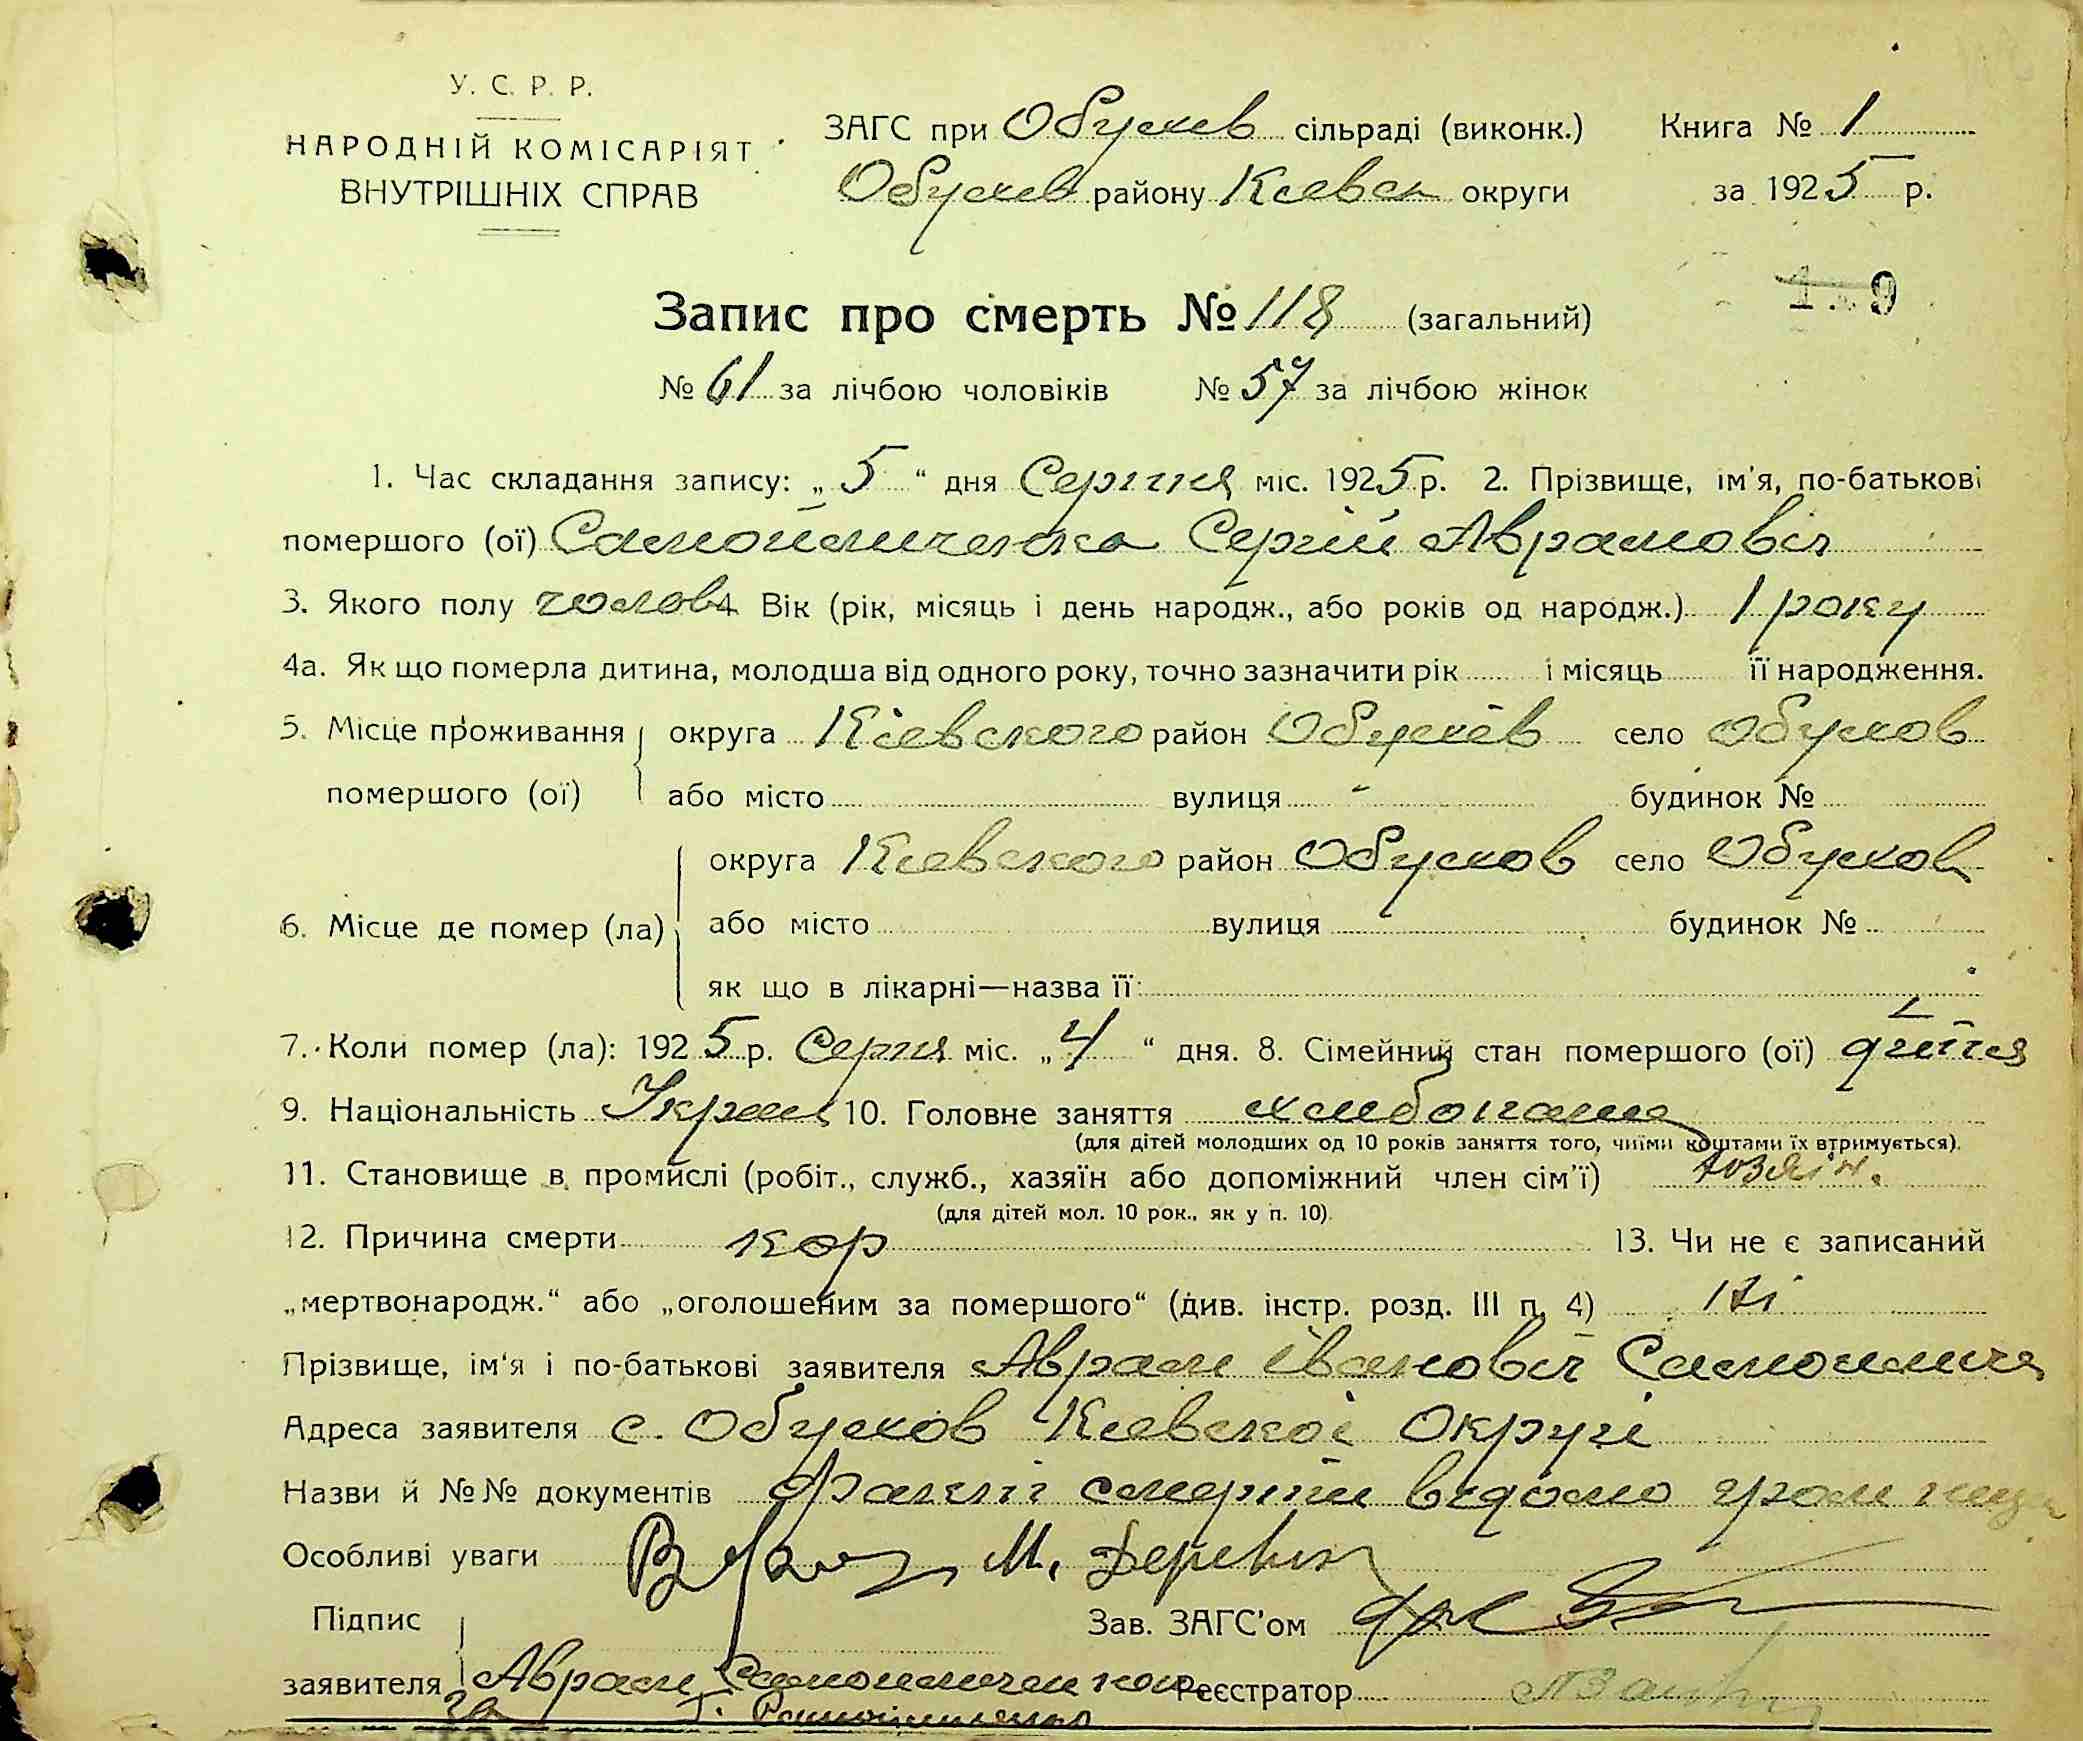 У. С. Р. Р.
НАРОДНІЙ КОМІСАРІЯТ
ВНУТРІШНІХ СПРАВ
ЗАГС при Обухів сільраді (виконк.) Книга № 1
Обухів району Київськ округи за 1925 р.
Запис про смерть № 118 (загальний)
№ 61 за лічбою чоловіків № 57 за лічбою жінок
1. Час складання запису: „ 5 “ дня Серпня міс. 1925 р. 2. Прізвище, ім'я, по-батькові
помершого (ої) Самойличенко Сергій Аврамовіч
3. Якого полу чолов 4. Вік (рік, місяць і день народж., або років од народж.) 1 року
4а. Як що померла дитина, молодша від одного року, точно зазначити рік і місяць її народження.
5. Місце проживання округа Кіевского район Обухів село Обухов
помершого (ої) або місто вулиця будинок №
округа Кіевского район Обухов село Обухов
6. Місце де помер (ла) або місто вулиця будинок №
як що в лікарні—назва її:
7. Коли помер (ла): 1925 р. Серпня міс. „ 4 “ дня. 8. Сімейний стан помершого (ої) дитя
9. Національність Украін 10. Головне заняття
(для дітей молодших од 10 років заняття того, чиїми коштами їх втримується).
11. Становище в промислі (робіт., служб., хазяїн або допоміжний член сім'ї) хозяін.
(для дітей мол. 10 рок., як у п. 10).
12. Причина смерти кор 13. Чи не є записаний
„мертвонародж.“ або „оголошеним за помершого“ (див. інстр. розд. III п. 4) Ні
Прізвище, ім'я і по-батькові заявителя Аврам Івановіч
Адреса заявителя с. Обухов Кіевскоі Округі
Назви й №№ документів смерти відомо
Особливі уваги М.
Підпис Зав. ЗАГС'ом
заявителя Аврам Реєстратор
за